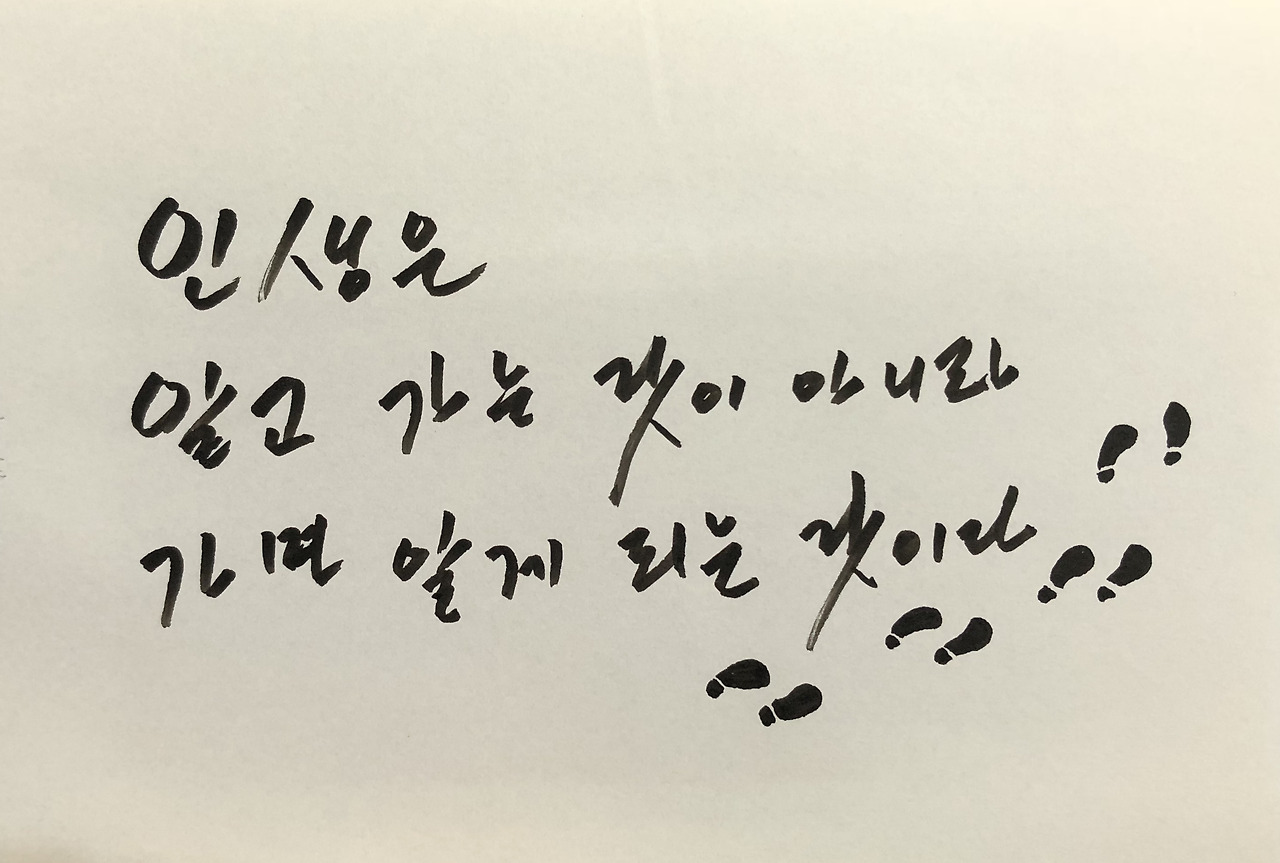 인생은
알고 가는 것이 아니라
가면 알게 되는 것이라